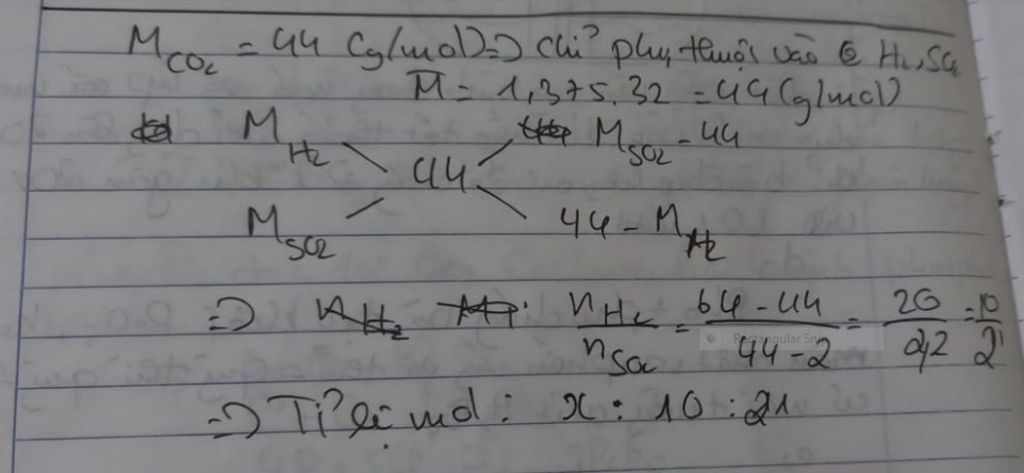 M_CO2 = 44 (g/mol) => chỉ phụ thuộc vào H2, SO2
M̄ = 1,375.32 = 44 (g/mol)
M_H2 M_SO2 - 44
44
M_SO2 44 - M_H2
=> n_H2 : n_H2/n_SO2 = (64 - 44)/(44 - 2) = 20/42 = 10/21
=> Tỉ lệ mol : x : 10 : 21
Rectangular Snip